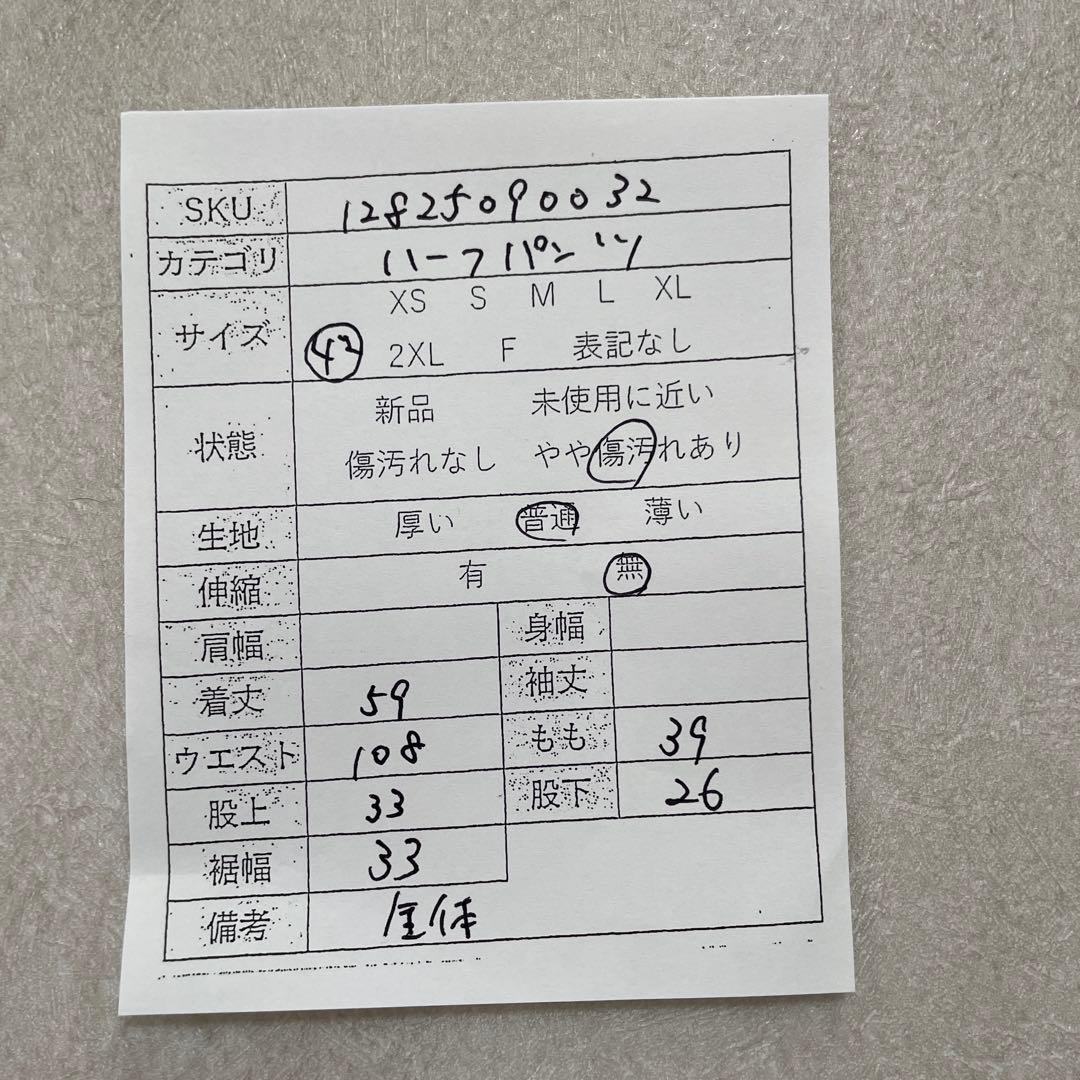 SKU 12825090032
カテゴリ ハーフパンツ
サイズ XS S M L XL
42 2XL F 表記なし
状態 新品 未使用に近い
傷汚れなし やや傷汚れあり
生地 厚い 普通 薄い
伸縮 有 無
肩幅 身幅
着丈 59 袖丈
ウエスト 108 もも 39
股上 33 股下 26
裾幅 33
備考 全体